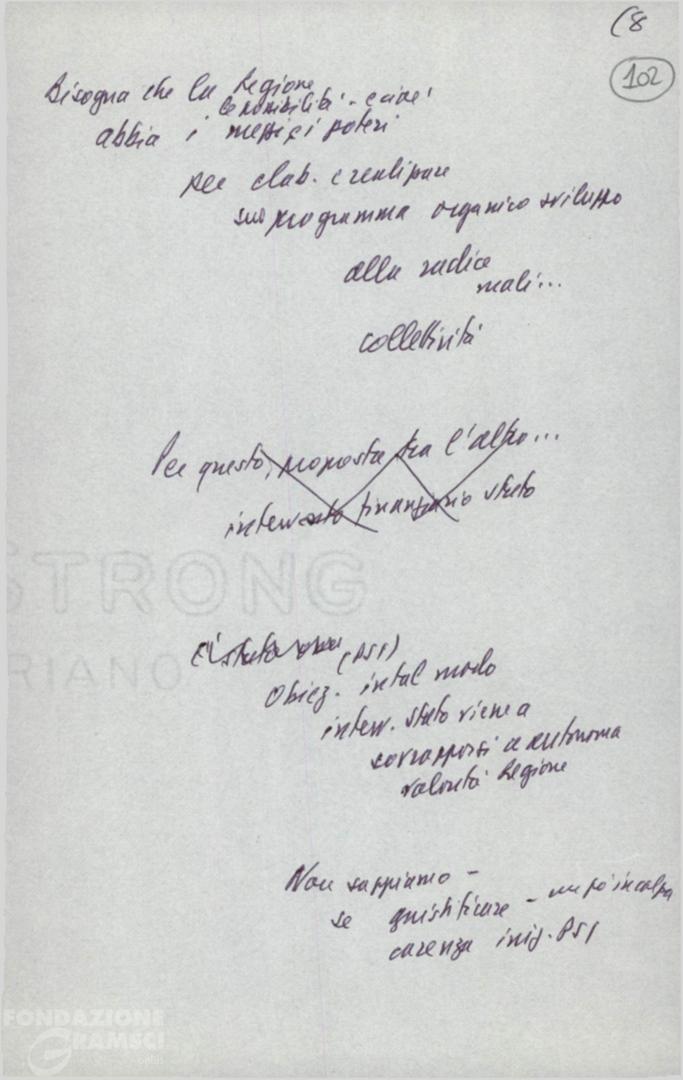 (8
102
Bisogna che la Regione
le possibilità - e cioè
abbia i mezzi e i poteri
per elab. e realizzare
suo programma organico sviluppo
alla radice
mali...
collettività
Per questo, proposta tra l'altro...
intervento finanziario stato
STRONG
RIANO
C'è stata una (PSI)
Obiez. in tal modo
interv. stato viene a
sovrapporsi a autonoma
volontà Regione
Non sappiamo -
se giustificare - un po' in colpa
carenza iniz. PSI
FONDAZIONE
GRAMSCI